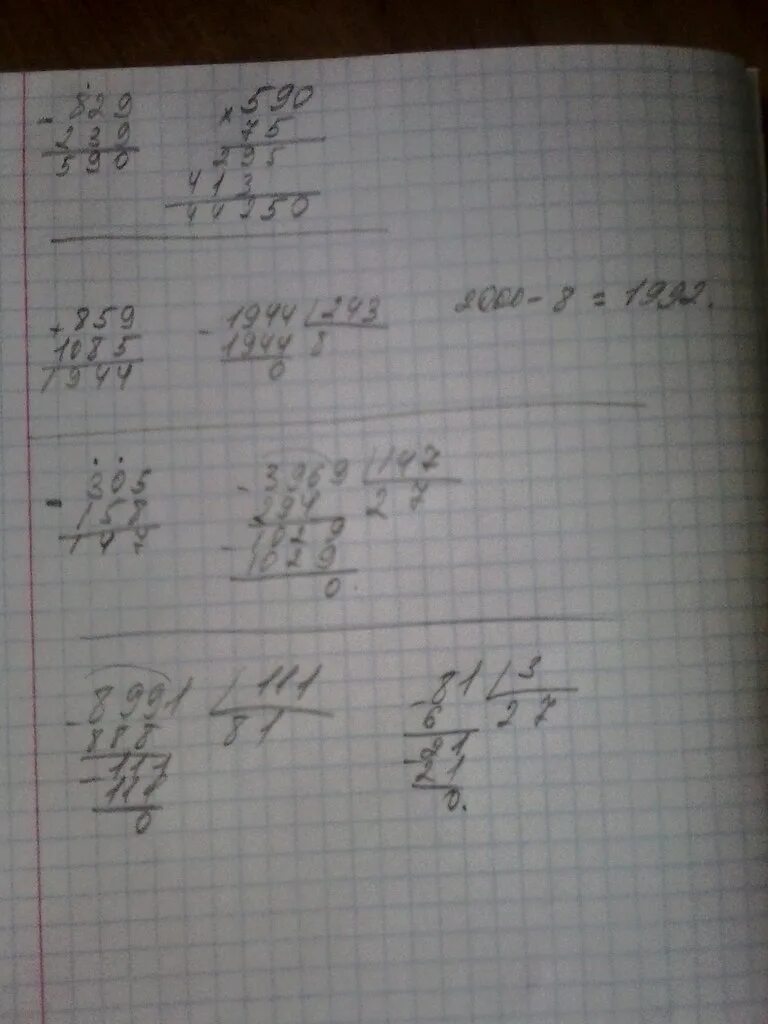 - 829
239
590
× 590
75
295
413
44250
+ 859
1085
1944
- 1944 | 243
1944 8
0
2000 - 8 = 1992.
- 305
158
147
- 3969 | 147
294 27
1029
- 1029
0
- 8991 | 111
888 81
- 111
111
0
- 81 | 3
6 27
- 21
21
0.